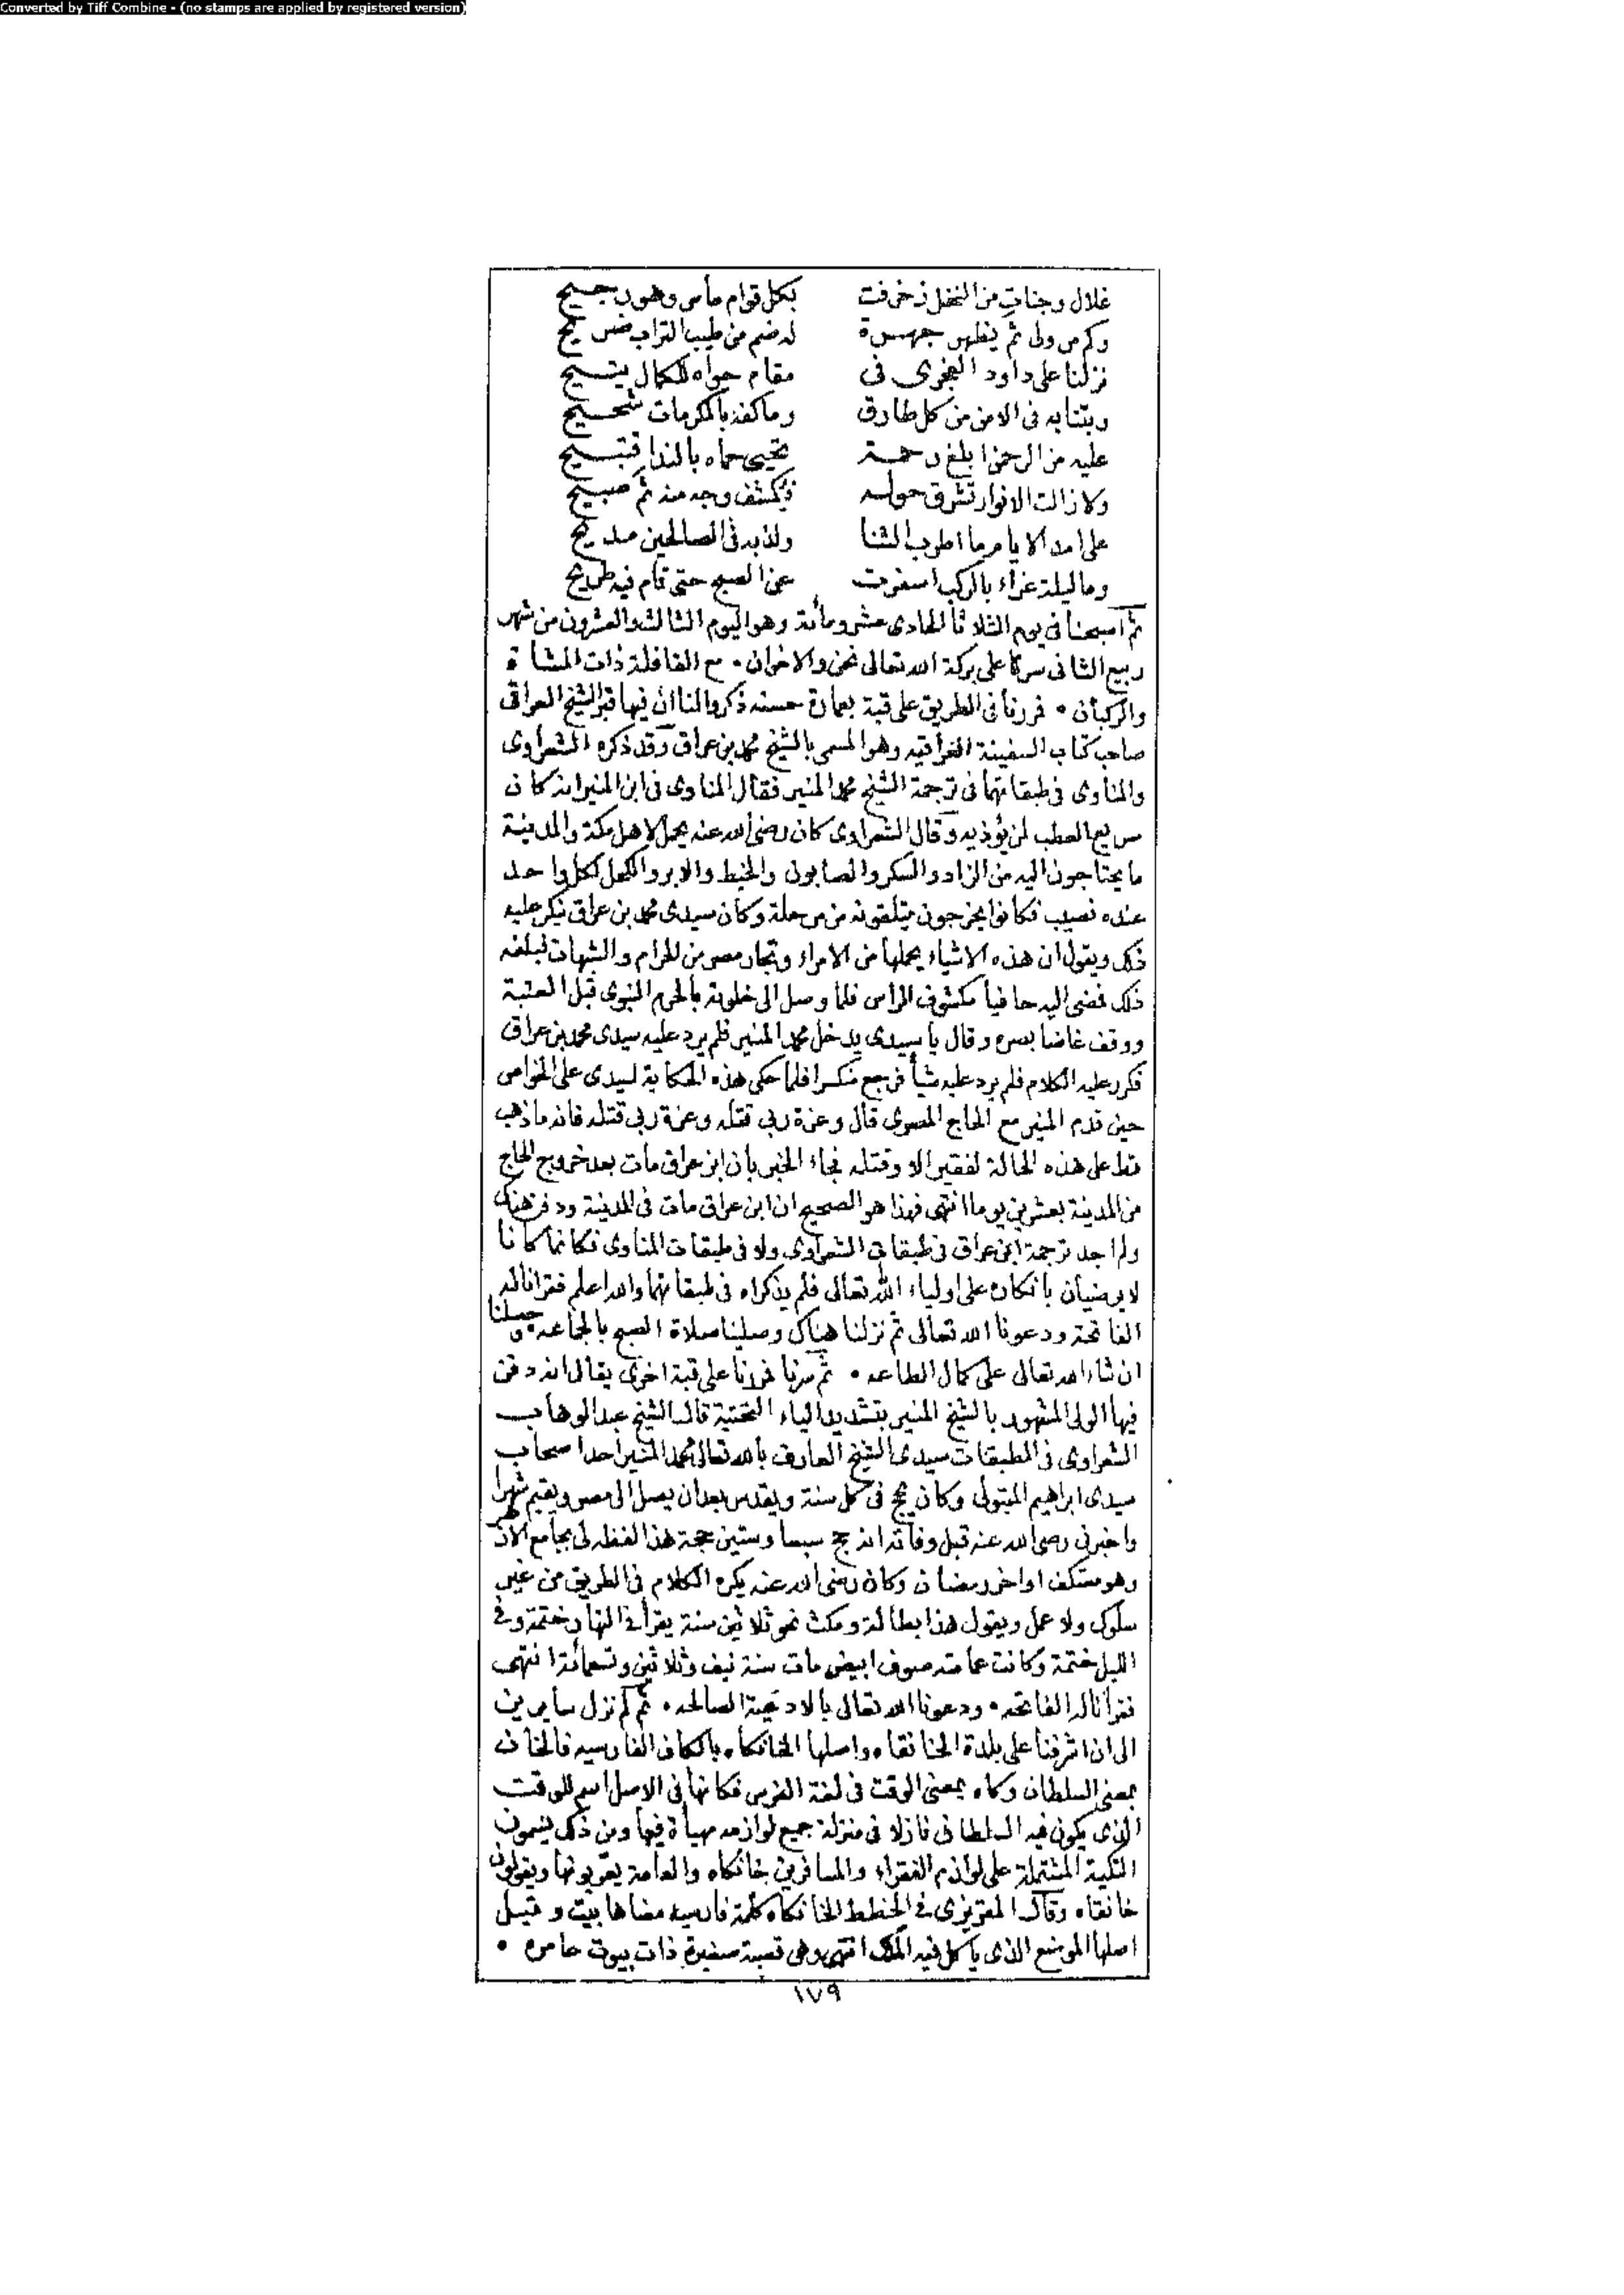 Converted by Tiff Combine - (no stamps are applied by registered version)
غلال وجنات من النخل زخرفت بكل قوام مأس وهور جسيح
وكم من ولى ثم يظهر جهرة له ضم من طيب التراب ضريح
نزلنا على داود العجزى فى مقام حواه للكمال يتيح
وبتنا به فى الامن من كل طارق وما كفه بالمكرمات شحيح
عليه من الرحمن ابلغ رحمة تحيى حماه بالندا
ولا زالت الانوار تشرق حوله فيكشف وجه منه ثم صبيح
على امد الايام ما اطرب الثنا ولذ به فى الصالحين مديح
وما ليلة غراء بالركب اسفرت عن الصبح حتى قام فيه طريح
ثم اصبحنا فى يوم الثلاثا الحادى عشر ومائة وهو اليوم الثالث والعشرون من شهر
ربيع الثانى سرنا على بركة الله تعالى نحن والاخوان • مع القافلة ذات المشاة
والركبان • فمررنا فى الطريق على قبة بعمارة حسنه ذكروا لنا ان فيها قبر الشيخ العراقى
صاحب كتاب السفينة العراقيه وهو المسمى بالشيخ محمد بن عراق وقد ذكره الشعراوى
والمناوى فى طبقاتهما فى ترجمة الشيخ محمد المنير فقال المناوى فى ابن المنير انه كان
سريع العطب لمن يؤذيه وقال الشعراوى كان رضى الله عنه يحمل لاهل مكة والمدينة
ما يحتاجون اليه من الزاد والسكر والصابون والخيط والابر والكحل لكل واحد
عنده نصيب فكانوا يخرجون يتلقونه من مرحلة وكان سيدى محمد بن عراق ينكر عليه
ذلك ويقول ان هذه الاشياء يحملها من الامراء وتجار مصر من الحرام والشبهات فبلغه
ذلك فمضى اليه حافيا مكشوف الراس فلما وصل الى خلوته بالحرم النبوى قبل العتبة
ووقف غاضا بصره وقال يا سيدى يدخل محمد المنير فلم يرد عليه سيدى محمد بن عراق
فكرر عليه الكلام فلم يرد عليه شيأ فرجع منكسرا فلما حكى هذه الحكاية لسيدى على الخواص
حين قدم المنير مع الحاج المصرى قال وعزة ربى قتله وعزة ربى قتله فانه ما ذهب
قط على هذه الحالة لفقير الا وقتله فجاء الخبر بان ابن عراق مات بعد خروج الحاج
من المدينة بعشرين يوما انتهى فهذا هو الصحيح ان ابن عراق مات فى المدينة ودفن هناك
ولم اجد ترجمة ابن عراق فى طبقات الشعراوى ولا فى طبقات المناوى فكانهما كانا
لا يرضيان بانكاره على اولياء الله تعالى فلم يذكراه فى طبقاتهما والله اعلم فقرانا له
الفاتحة ودعونا الله تعالى ثم نزلنا هناك وصلينا صلاة الصبح بالجماعه • وحصلنا
ان شاء الله تعالى على كمال الطاعه • ثم سرنا فمررنا على قبة اخرى يقال انه دفن
فيها الولى المشهور بالشيخ المنير بتشديد الياء التحتية قال الشيخ عبد الوهاب
الشعراوى فى الطبقات سيدى الشيخ العارف بالله تعالى محمد المنير احد اصحاب
سيدى ابراهيم المتبولى وكان يحج فى كل سنة ويقدس بعد ان يصل الى مصر ويقيم شهرا
واخبرنى رضى الله عنه قبل وفاته انه حج سبعا وستين حجة هذا لفظه لى بجامع الازهر
وهو معتكف اواخر رمضان وكان رضى الله عنه يكره الكلام فى الطريق من غير
سلوك ولا عمل ويقول هذا بطالة ومكث نحو ثلاثين سنة يقرأ فى النهار ختمة وفى
الليل ختمة وكانت عمامته صوف ابيض مات سنة نيف وثلاثين وتسعمائة انتهى
فقرأنا له الفاتحه • ودعونا الله تعالى بالادعية الصالحه • ثم لم نزل سايرين
الى ان اشرفنا على بلدة الخانقاه واصلها الخانكاه بالكاف الفارسيه فالخان
بمعنى السلطان وكاه بمعنى الوقت فى لغة الفرس فكانها فى الاصل اسم للوقت
الذى يكون فيه السلطان نازلا فى منزلة جميع لوازمه مهيأة فيها ومن ذلك يسمون
التكية المشتملة على لوازم الفقراء والمسافرين خانكاه والعامة يعربونها ويقولون
خانقاه وقال المقريزى فى الخطط الخانكاه كلمة فارسيه معناها بيت وقيل
اصلها الموضع الذى ياكل فيه الملك انتهى وهى قصبة صغيرة ذات بيوت عامره •
١٧٩